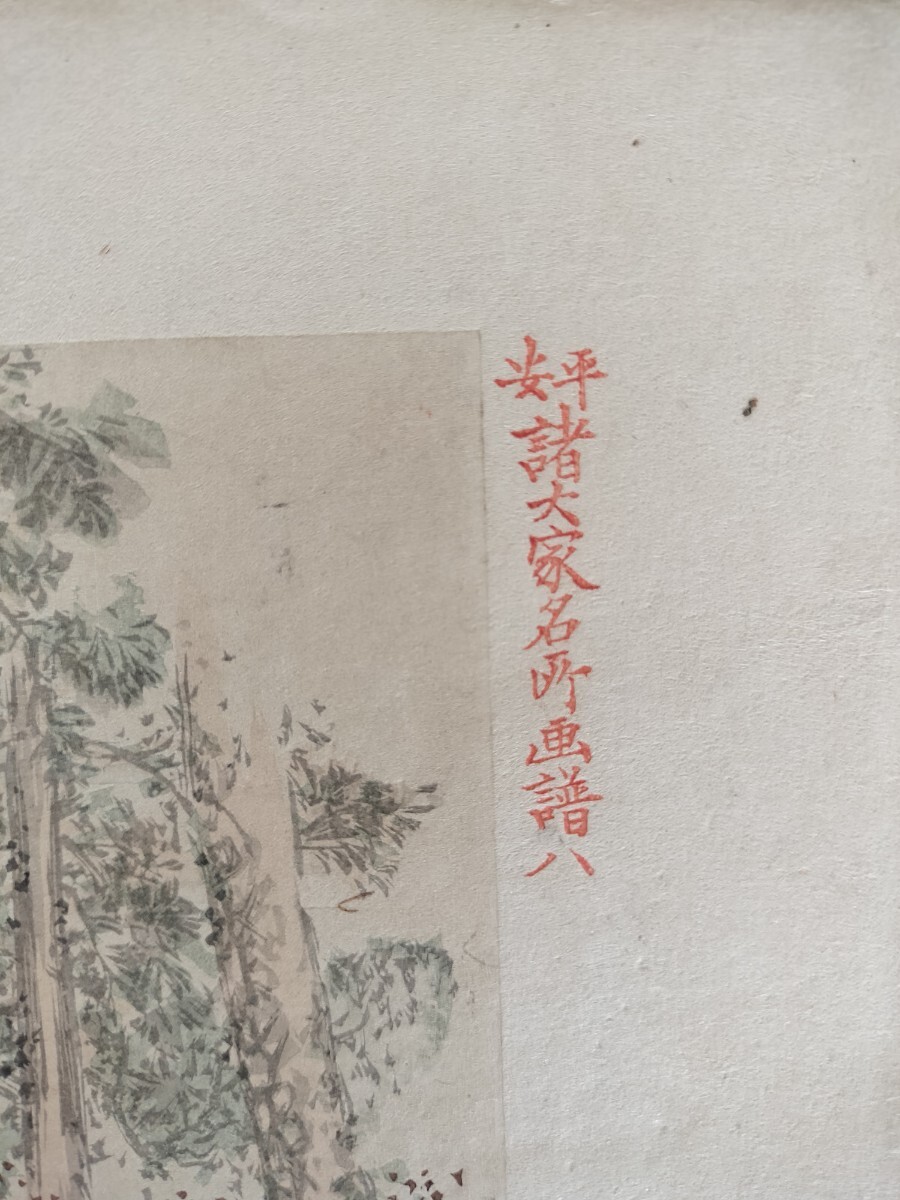 平安諸大家名所画譜八